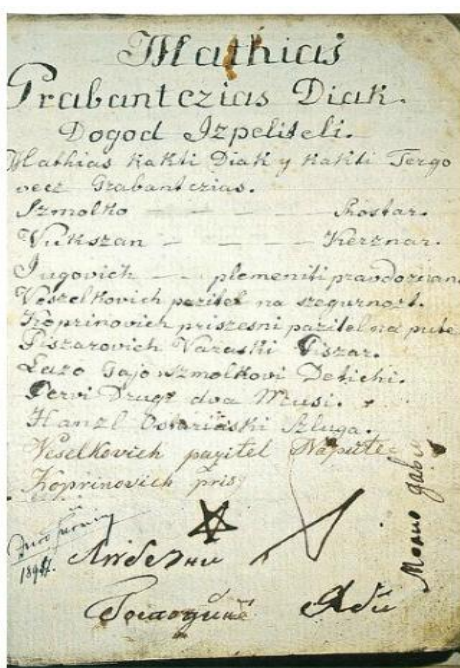 Mathias
Grabantczias Diak.
Dogod Izpeliteli.
Mathias kakti Diak y kakti Tergo
vecz Grabantczias.
Szmolko — — — Shostar.
Vukszan — — — Kerznar.
Jugovich — — plemeniti pravdoznan.
Veszelkovich pazitel na szegurnozt.
Koprinovich priszesni pazitel na pute
Piszarovich Varaski Piszar.
Lazo Gajo szmolkovi Detichi.
Pervi Drugi dva Musi.
Hanzl Ostariaski Szluga.
Veselkovich pazitel Napute
Koprinovich pris